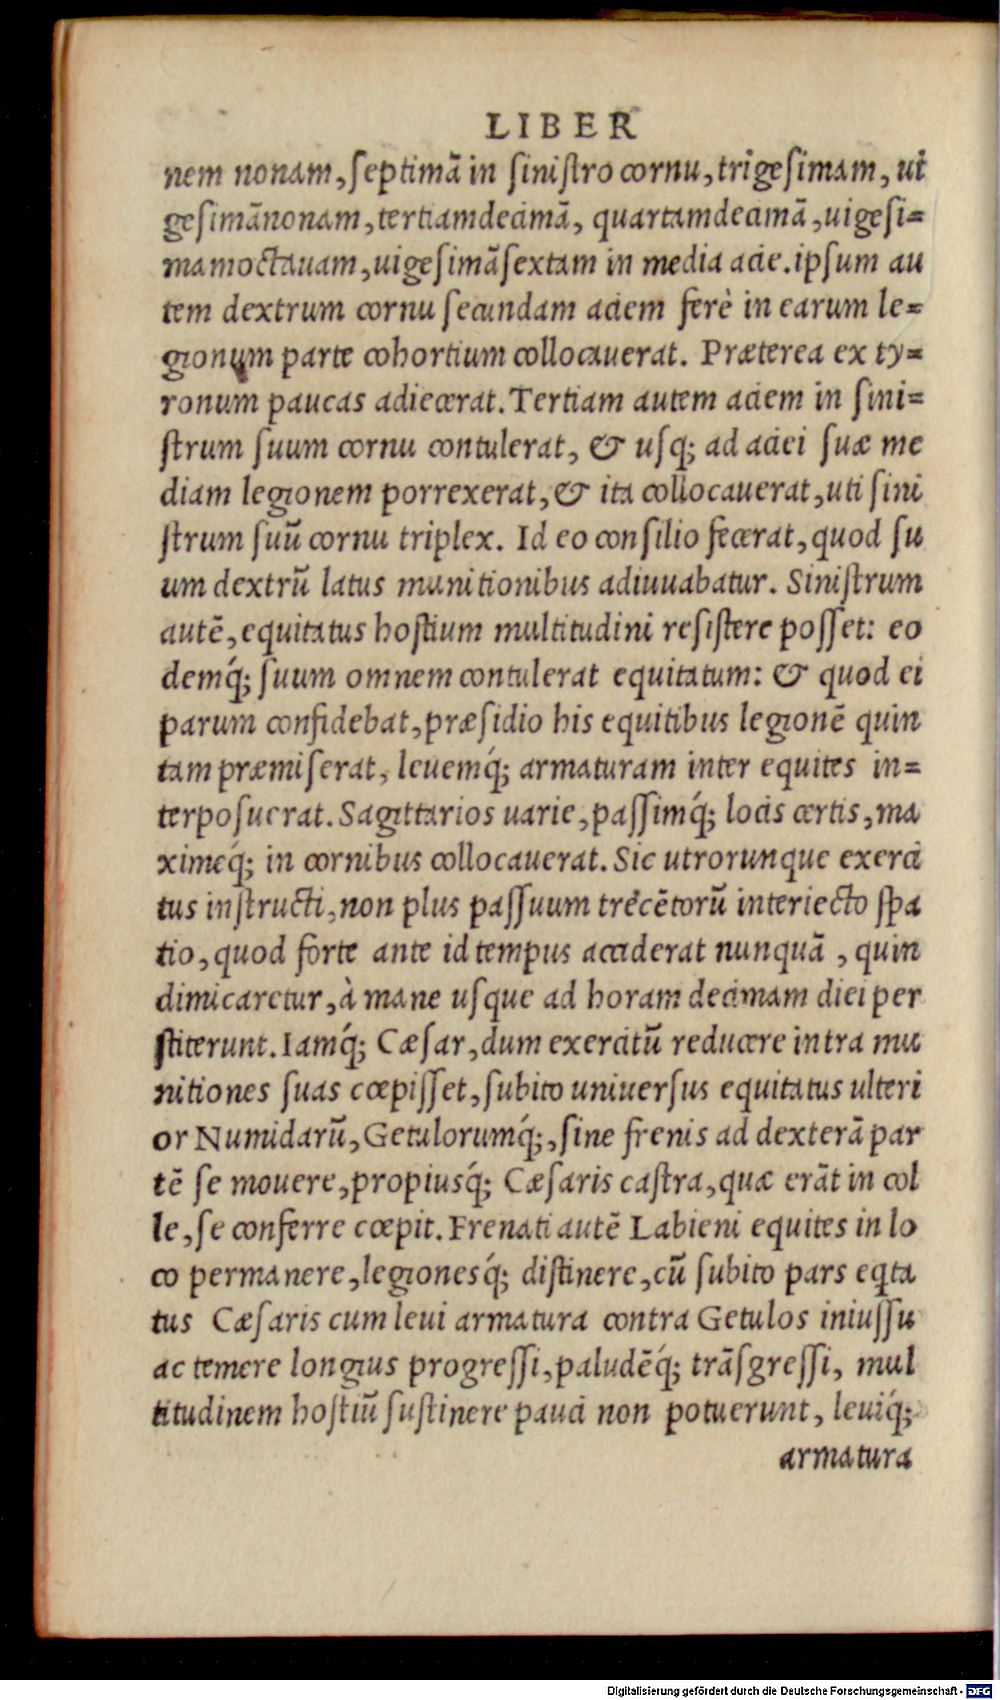 LIBER
nem nonam, septimã in sinistro cornu, trigesimam, ui
gesimãnonam, tertiamdecimã, quartamdecimã, uigesi=
mamoctauam, uigesimãsextam in media acie. ipsum au
tem dextrum cornu secundam aciem ferè in earum le=
gionum parte cohortium collocauerat. Præterea ex ty=
ronum paucas adiecerat. Tertiam autem aciem in sini=
strum suum cornu contulerat, & usq; ad aciei suæ me
diam legionem porrexerat, & ita collocauerat, uti sini
strum suũ cornu triplex. Id eo consilio fecerat, quod su
um dextrũ latus munitionibus adiuuabatur. Sinistrum
autẽ, equitatus hostium multitudini resistere posset: eo
demq́; suum omnem contulerat equitatum: & quod ei
parum confidebat, præsidio his equitibus legionẽ quin
tam præmiserat, leuemq́; armaturam inter equites in=
terposuerat. Sagittarios uarie, passimq́; locis certis, ma
ximeq́; in cornibus collocauerat. Sic utrorunque exerci
tus instructi, non plus passuum trecẽtorũ interiecto spa
tio, quod forte ante id tempus acciderat nunquã, quin
dimicaretur, à mane usque ad horam decimam diei per
stiterunt. Iamq́; Cæsar, dum exercitũ reducere intra mu
nitiones suas cœpisset, subito uniuersus equitatus ulteri
or Numidarũ, Getulorumq́;, sine frenis ad dexterã par
tẽ se mouere, propiusq́; Cæsaris castra, quæ erãt in col
le, se conferre cœpit. Frenati autẽ Labieni equites in lo
co permanere, legionesq́; distinere, cũ subito pars eqta
tus Cæsaris cum leui armatura contra Getulos iniussu
ac temere longius progressi, paludẽq́; trãsgressi, mul
titudinem hostiũ sustinere pauci non potuerunt, leuiq́;
armatura
Digitalisierung gefördert durch die Deutsche Forschungsgemeinschaft - DFG